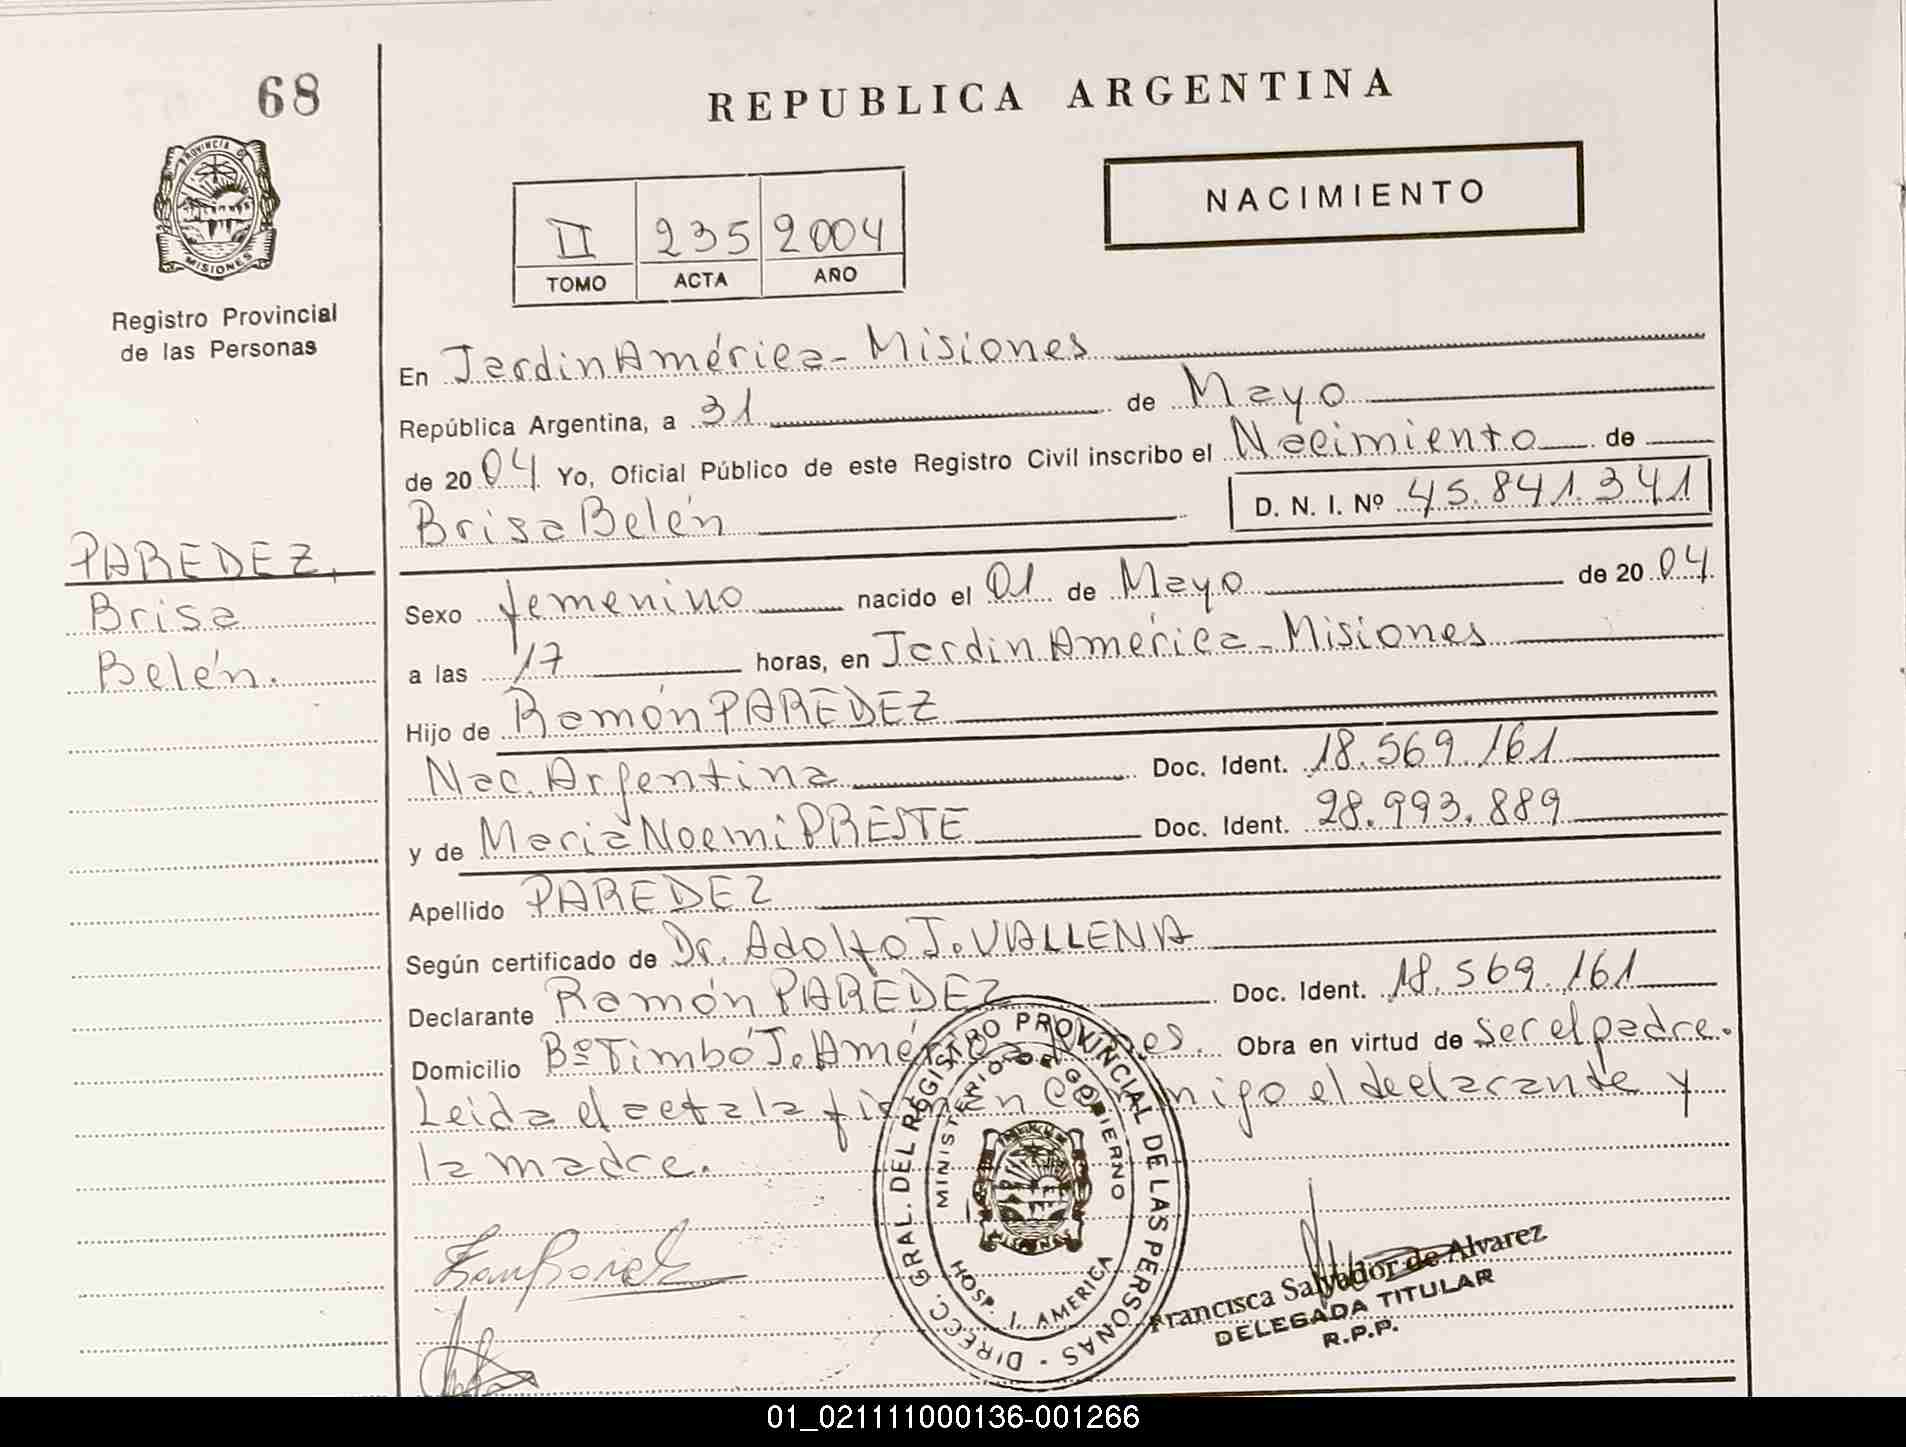 68
REPUBLICA ARGENTINA
PROVINCIA DE
MISIONES
Registro Provincial
de las Personas
NACIMIENTO
II 235 2004
TOMO ACTA AÑO
En Jardín América - Misiones
República Argentina, a 31 de Mayo
de 2004 Yo, Oficial Público de este Registro Civil inscribo el Nacimiento de
Brisa Belén D. N. I. Nº 45.841.341
PAREDEZ,
Brisa
Belén.
Sexo femenino nacido el 01 de Mayo de 2004
a las 17 horas, en Jardín América - Misiones
Hijo de Ramón PAREDEZ
Nac. Argentina Doc. Ident. 18.569.161
y de María Noemi PRESTE Doc. Ident. 28.993.889
Apellido PAREDEZ
Según certificado de Dr. Adolfo J. VALLENA
Declarante Ramón PAREDEZ Doc. Ident. 18.569.161
Domicilio Bº Timbó J. América Mnes. Obra en virtud de ser el padre.
Leida el acta la firman conmigo el declarante y
la madre.
DIRECC. GRAL. DEL REGISTRO PROVINCIAL DE LAS PERSONAS
MINISTERIO DE GOBIERNO
MISIONES
HOSP. J. AMERICA
Francisca Salvador de Alvarez
DELEGADA TITULAR
R.P.P.
01_021111000136-001266